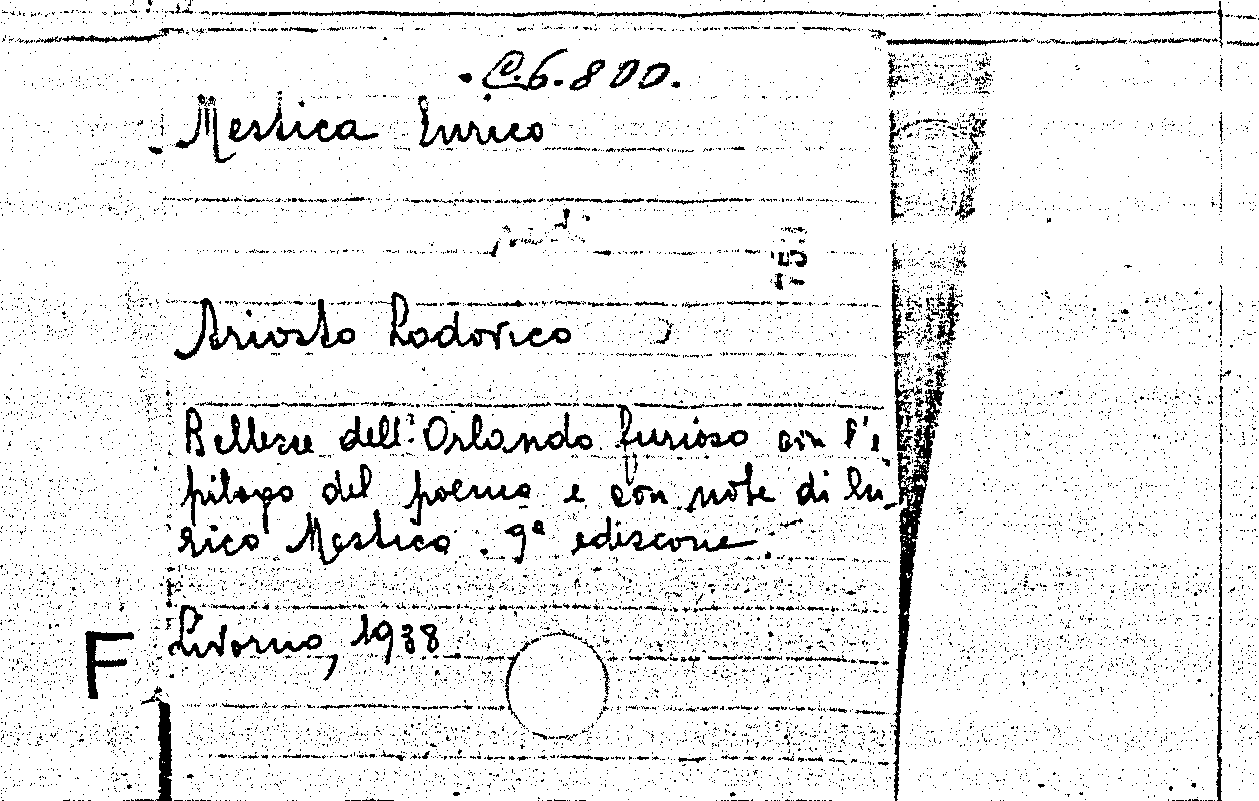 C.6.800.
Mestica Enrico
Ariosto Lodovico
Bellezze dell'Orlando furioso con l'e
pilogo del poema e con note di En
rico Mestica. 9ª edizione.
Livorno, 1938
F